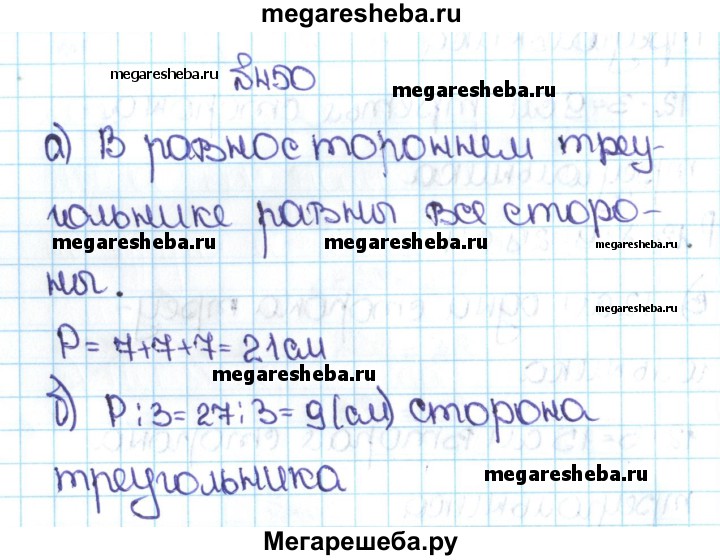 megaresheba.ru
megaresheba.ru №450 megaresheba.ru
а) В равностороннем треу-
гольнике равны все сторо-
megaresheba.ru megaresheba.ru megaresheba.ru
ны.
megaresheba.ru
P = 7+7+7 = 21 см
megaresheba.ru
б) P : 3 = 27 : 3 = 9 (см) сторона
треугольника megaresheba.ru
Мегарешеба.ру